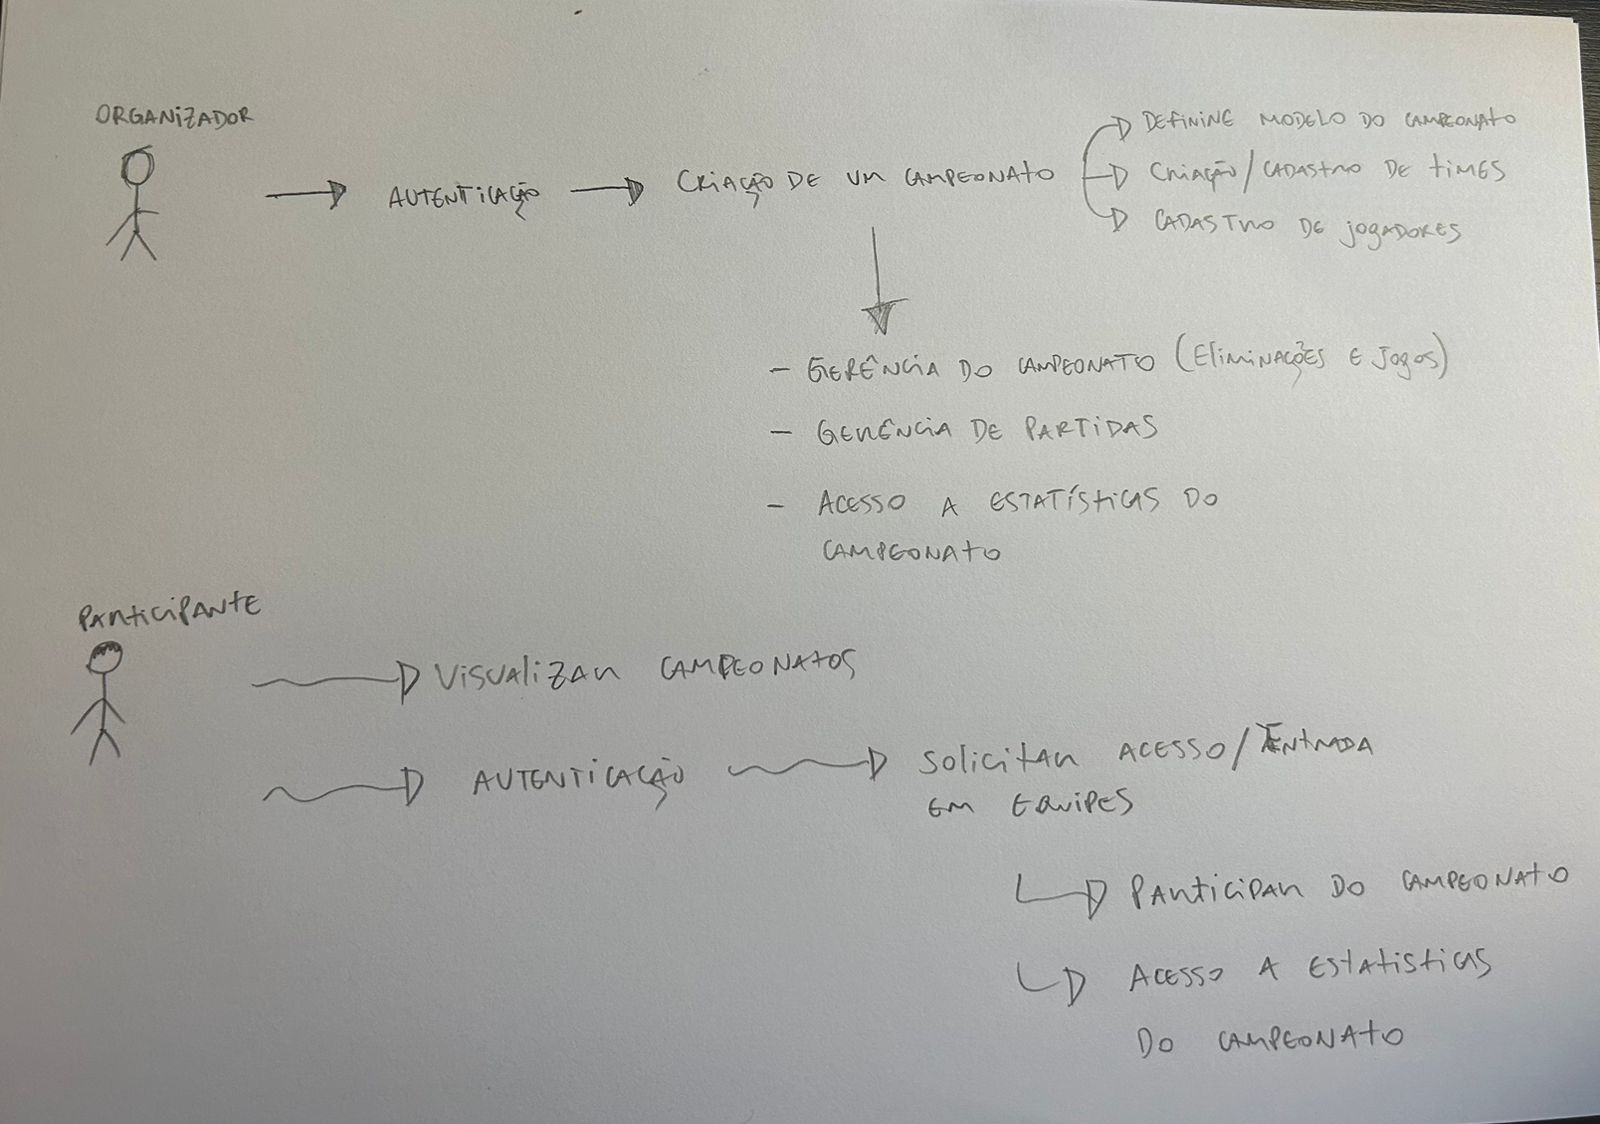 ORGANIZADOR
AUTENTICAÇÃO
CRIAÇÃO DE UM CAMPEONATO
DEFININE MODELO DO CAMPEONATO
CRIAÇÃO/CADASTRO DE TIMES
CADASTRO DE JOGADORES
- GERÊNCIA DO CAMPEONATO (ELIMINAÇÕES E JOGOS)
- GERÊNCIA DE PARTIDAS
- ACESSO A ESTATÍSTICAS DO
CAMPEONATO
PARTICIPANTE
VISUALIZAR CAMPEONATOS
AUTENTICAÇÃO
SOLICITAR ACESSO/ENTRADA
EM EQUIPES
PARTICIPAR DO CAMPEONATO
ACESSO A ESTATISTICAS
DO CAMPEONATO